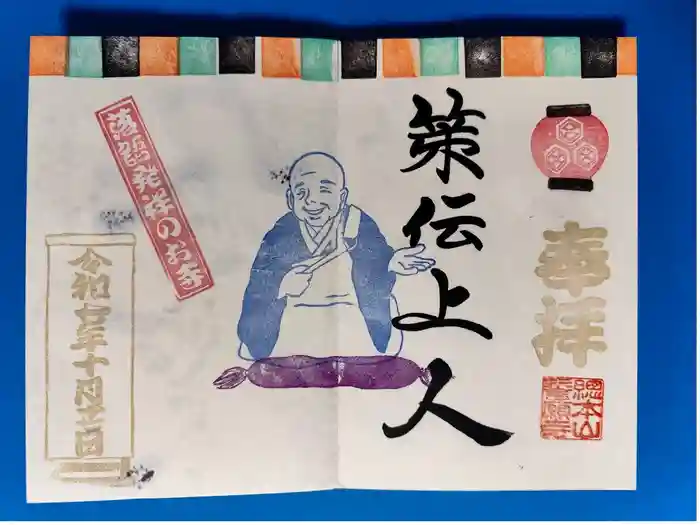 奉拝
總本山
誓願寺
策伝上人
落語発祥のお寺
令和七年十月